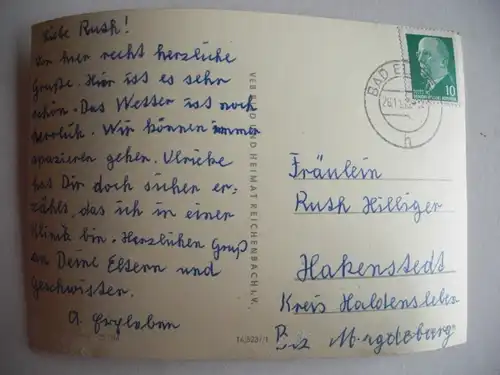 Liebe Ruth!
Von hier recht herzliche
Grüße. Hier ist es sehr
schön. Das Wetter ist noch
herrlich. Wir können immer
spazieren gehen. Ulrike
hat Dir doch sicher er-
zählt, das ich in einer
Klinik bin. Herzlichen Gruß
an Deine Eltern und
Geschwister.
VEB BILD UND HEIMAT REICHENBACH I. V.
BAD
10
h
Fräulein
Ruth Hilliger
Hakenstedt
Kreis Haldensleben
Bez Magdeburg